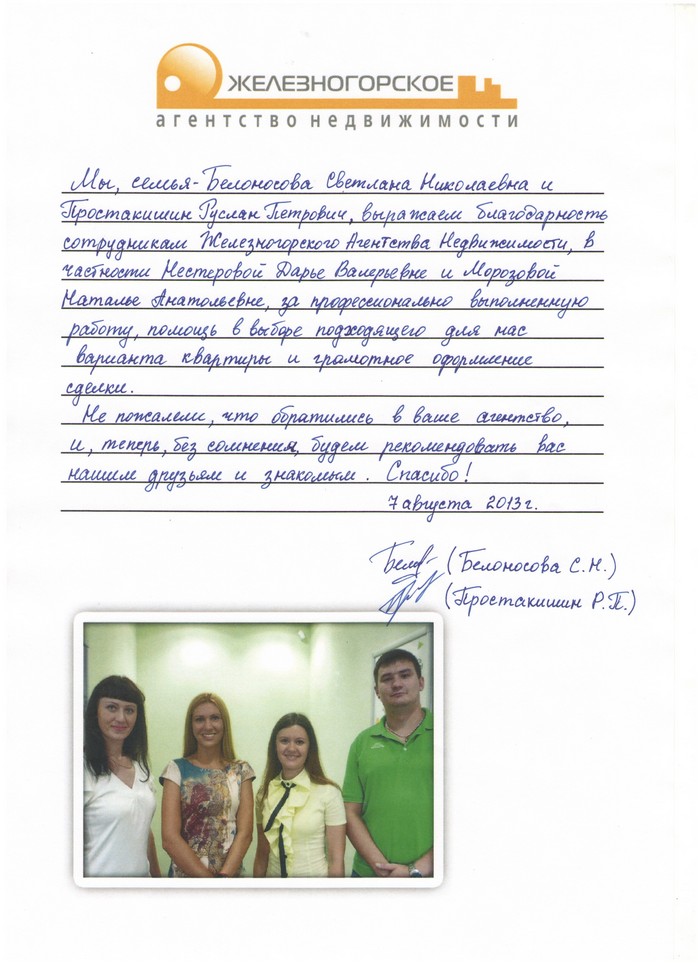 ЖЕЛЕЗНОГОРСКОЕ
агентство недвижимости
Мы, семья - Белоносова Светлана Николаевна и
Простакишин Руслан Петрович, выражаем благодарность
сотрудникам Железногорского Агентства Недвижимости, в
частности Нестеровой Дарье Валерьевне и Морозовой
Наталье Анатольевне, за профессионально выполненную
работу, помощь в выборе подходящего для нас
варианта квартиры и грамотное оформление
сделки.
Не пожалели, что обратились в ваше агентство,
и, теперь, без сомнения, будем рекомендовать вас
нашим друзьям и знакомым. Спасибо!
7 августа 2013г.
(Белоносова С.Н.)
(Простакишин Р.П.)